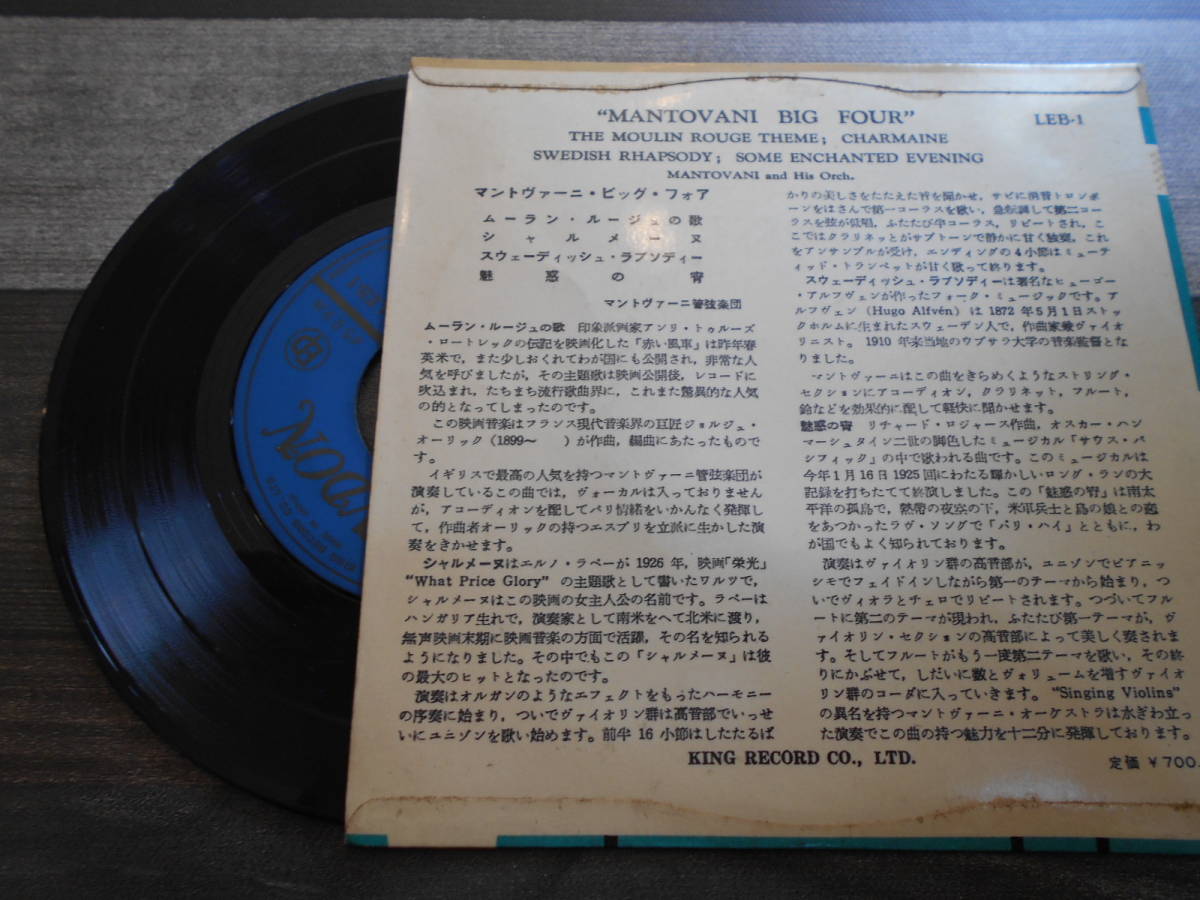 "MANTOVANI BIG FOUR"
LEB-1
THE MOULIN ROUGE THEME; CHARMAINE
SWEDISH RHAPSODY; SOME ENCHANTED EVENING
MANTOVANI and His Orch.
マントヴァーニ・ビッグ・フォア
ムーラン・ルージュの歌
シャルメーヌ
スウェーディッシュ・ラプソディー
魅惑の宵
マントヴァーニ管弦楽団
ムーラン・ルージュの歌 印象派画家アンリ・トゥルーズ
・ロートレックの伝記を映画化した「赤い風車」は昨年春
英米で，また少しおくれてわが国にも公開され，非常な人
気を呼びましたが，その主題歌は映画公開後，レコードに
吹込まれ，たちまち流行歌曲界に，これまた驚異的な人気
の的となってしまったのです。
この映画音楽はフランス現代音楽界の巨匠ジョルジュ・
オーリック（1899～ ）が作曲，編曲にあたったもので
す。
イギリスで最高の人気を持つマントヴァーニ管弦楽団が
演奏しているこの曲では，ヴォーカルは入っておりません
が，アコーディオンを配してパリ情緒をいかんなく発揮し
て，作曲者オーリックの持つエスプリを立派に生かした演
奏をきかせます。
シャルメーヌはエルノ・ラペーが 1926 年，映画「栄光」
"What Price Glory" の主題歌として書いたワルツで，
シャルメーヌはこの映画の女主人公の名前です。ラペーは
ハンガリア生れで，演奏家として南米をへて北米に渡り，
無声映画末期に映画音楽の方面で活躍，その名を知られる
ようになりました。その中でもこの「シャルメーヌ」は彼
の最大のヒットとなったのです。
演奏はオルガンのようなエフェクトをもったハーモニー
の序奏に始まり，ついでヴァイオリン群は高音部でいっせ
いにユニゾンを歌い始めます。前半 16 小節はしたたるば
かりの美しさをたたえた旨を聞かせ，サビに消音トロンボ
ーンをはさんで第一コーラスを歌い，急転調して第二コー
ラスを弦が低唱，ふたたび半コーラス，リピートされ，こ
こではクラリネッとがサブトーンで静かに甘く独奏，これ
をアンサンブルが受け，エンディングの4小節はミューテ
ィッド・トランペットが甘く歌って終ります。
スウェーディッシュ・ラプソディーは著名なヒューゴー
・アルフヴェンが作ったフォーク・ミュージックです。ア
ルフヴェン (Hugo Alfvén) は 1872 年5月1日ストッ
クホルムに生まれたスウェーデン人で，作曲家兼ヴァイオ
リニスト。1910 年来当地のウプサラ大学の音楽監督とな
りました。
マントヴァーニはこの曲をきらめくようなストリング・
セクションにアコーディオン，クラリネット，フルート，
鈴などを効果的に配して軽快に聞かせます。
魅惑の宵 リチャード・ロジャース作曲，オスカー・ハン
マーシュタイン二世の脚色したミュージカル「サウス・パ
シフィック」の中で歌われる曲です。このミュージカルは
今年1月16日1925回にわたる輝かしいロング・ランの大
記録を打ちたてて終演しました。この「魅惑の宵」は南太
平洋の孤島で，熱帯の夜空の下，米軍兵士と島の娘との
をあつかったラヴ・ソングで「バリ・ハイ」とともに，わ
が国でもよく知られております。
演奏はヴァイオリン群の高音部が，ユニゾンでピアニッ
シモでフェイドインしながら第一のテーマから始まり，つ
いでヴィオラとチェロでリピートされます。つづいてフルー
トに第二のテーマが現われ，ふたたび第一テーマが，ヴ
ァイオリン・セクションの高音部によって美しく奏されま
す。そしてフルートがもう一度第二テーマを歌い，その終
りにかぶせて，しだいに数とヴォリュームを増すヴァイオ
リン群のコーダに入っていきます。"Singing Violins"
の異名を持つマントヴァーニ・オーケストラは水ぎわ立っ
た演奏でこの曲の持つ魅力を十二分に発揮しております。
KING RECORD CO., LTD.
定価 ￥700.